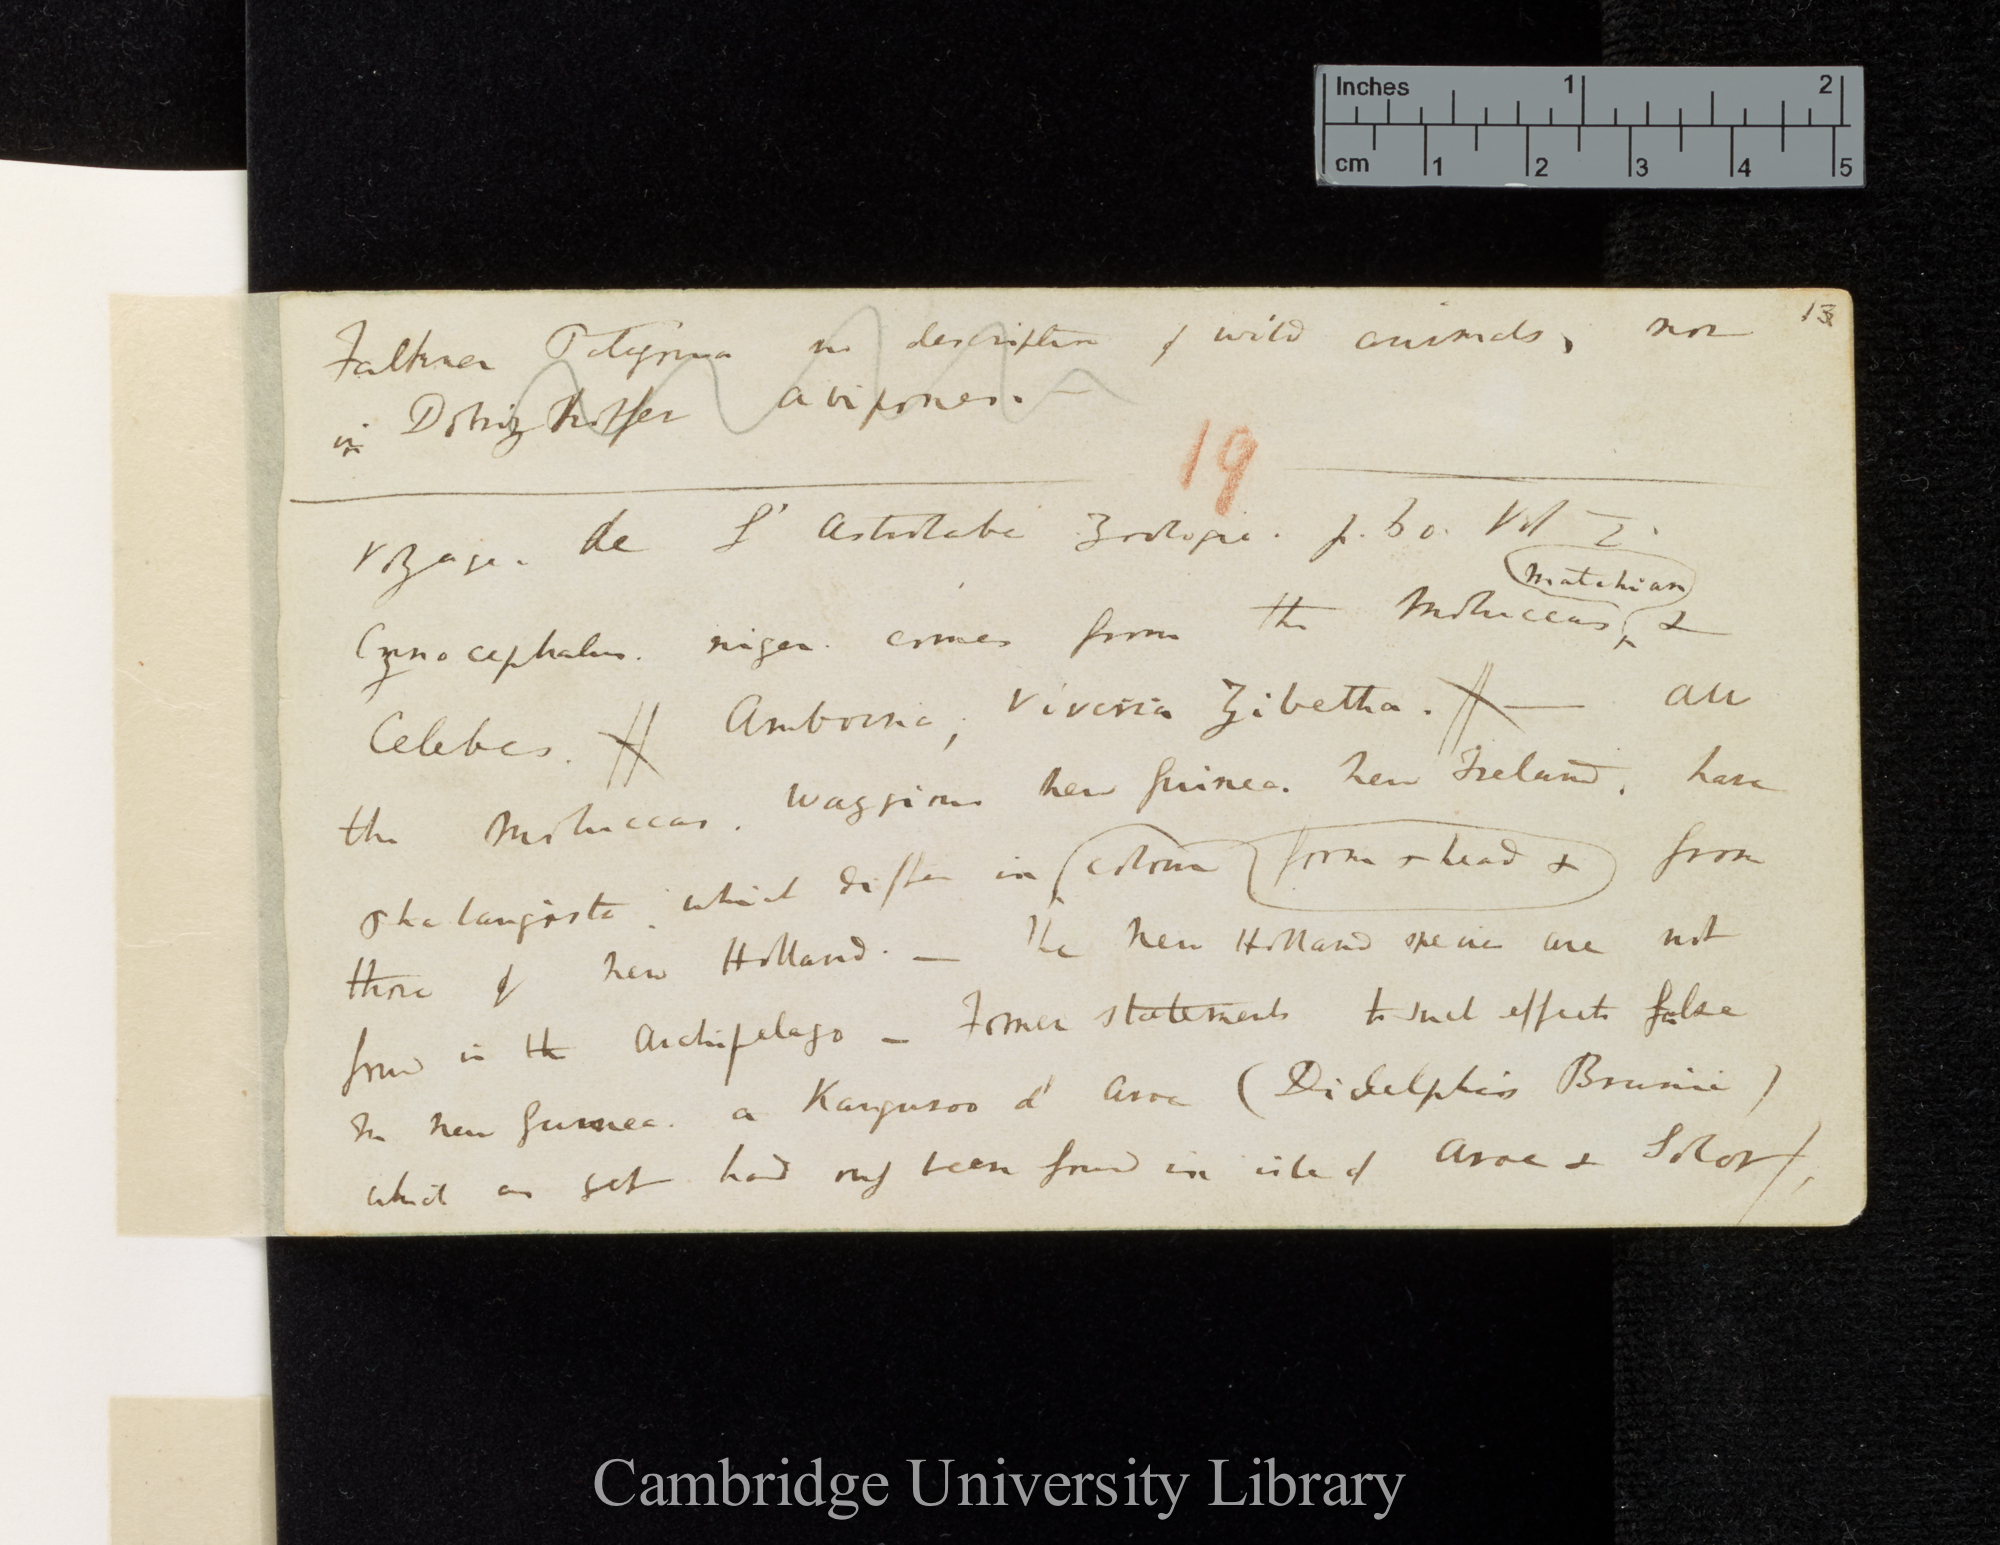 Inches 1 2
cm 1 2 3 4 5
13
Falkner Patagonia no description of wild animals, nor
in Dobrizhoffer Abipones. —
19
Voyage. de L' Astrolabe Zoologie. p. 60. Vol I.
Matchian
Cynocephalus. niger. comes from the Moluccas, &
Celebes. Amboina, Viverra Zibetha. — all
the Moluccas. Waggiou New Guinea. New Ireland, have
phalangista which differ in colour form & head & from
those of New Holland. — The New Holland species are not
found in the Archipelago — Former statements to such effect false
In New Guinea. a Kanguroo d' Aroe (Didelphis Brunii)
which as yet had only been found in isle of Aroe & Solor/,
Cambridge University Library